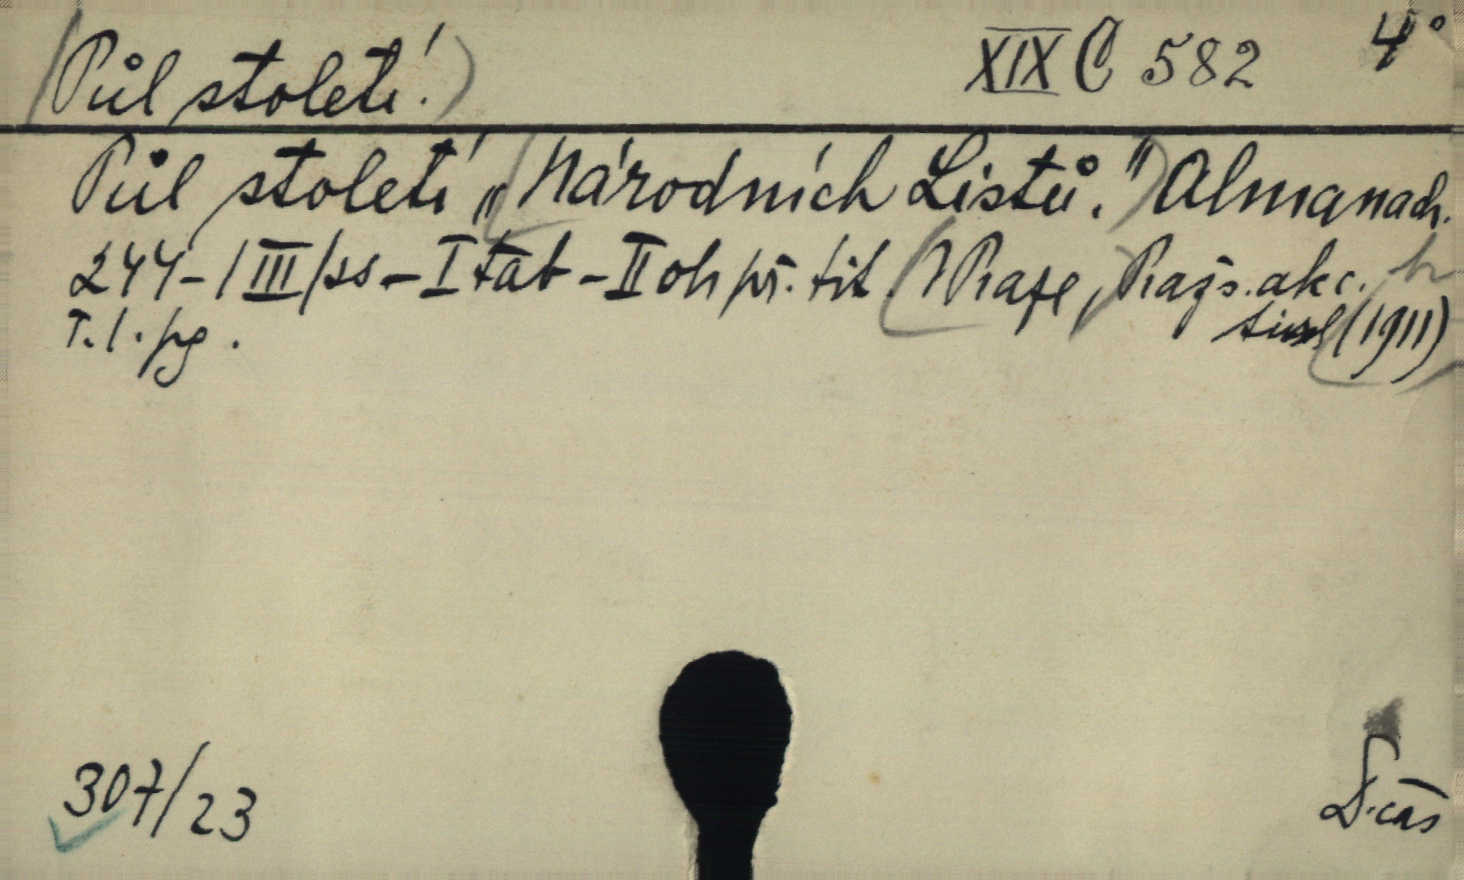 (Půl století)
XIX C 582
4°
Půl století „Národních Listů." Almanach.
244-/III/ss - I tab - II ob př. tit (V Praze, Praž. akc.
tisk (1911)
T. l. pg.
307/23